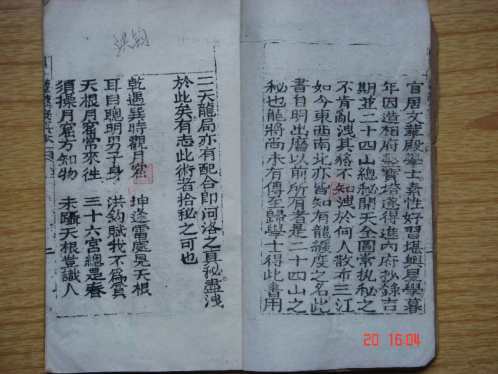 官居文華殿學士素性好習堪輿星學暮
年因造相府寶塔遂得進內府抄錄吉
期並二十四山總秘開天全圖常执秘之
不肯亂洩其稿不知洩於何人散布三江
如今東西南北亦皆知有龍纏度之名此
書自明出磨以前所有者是二十四山之
秘也龍將尚未有傳至歸學士得此書用
二天龍局亦有配合即河洛之真秘盡洩
於此矣有志此術者拾秘之可也
乾遇巽時觀月窟 坤逢雷處見天根
耳目聰明男子身 洪鈞賦我不為貧
天根月窟常來往 三十六宮總是春
須探月窟方知物 未躡天根豈識人
20 16:04